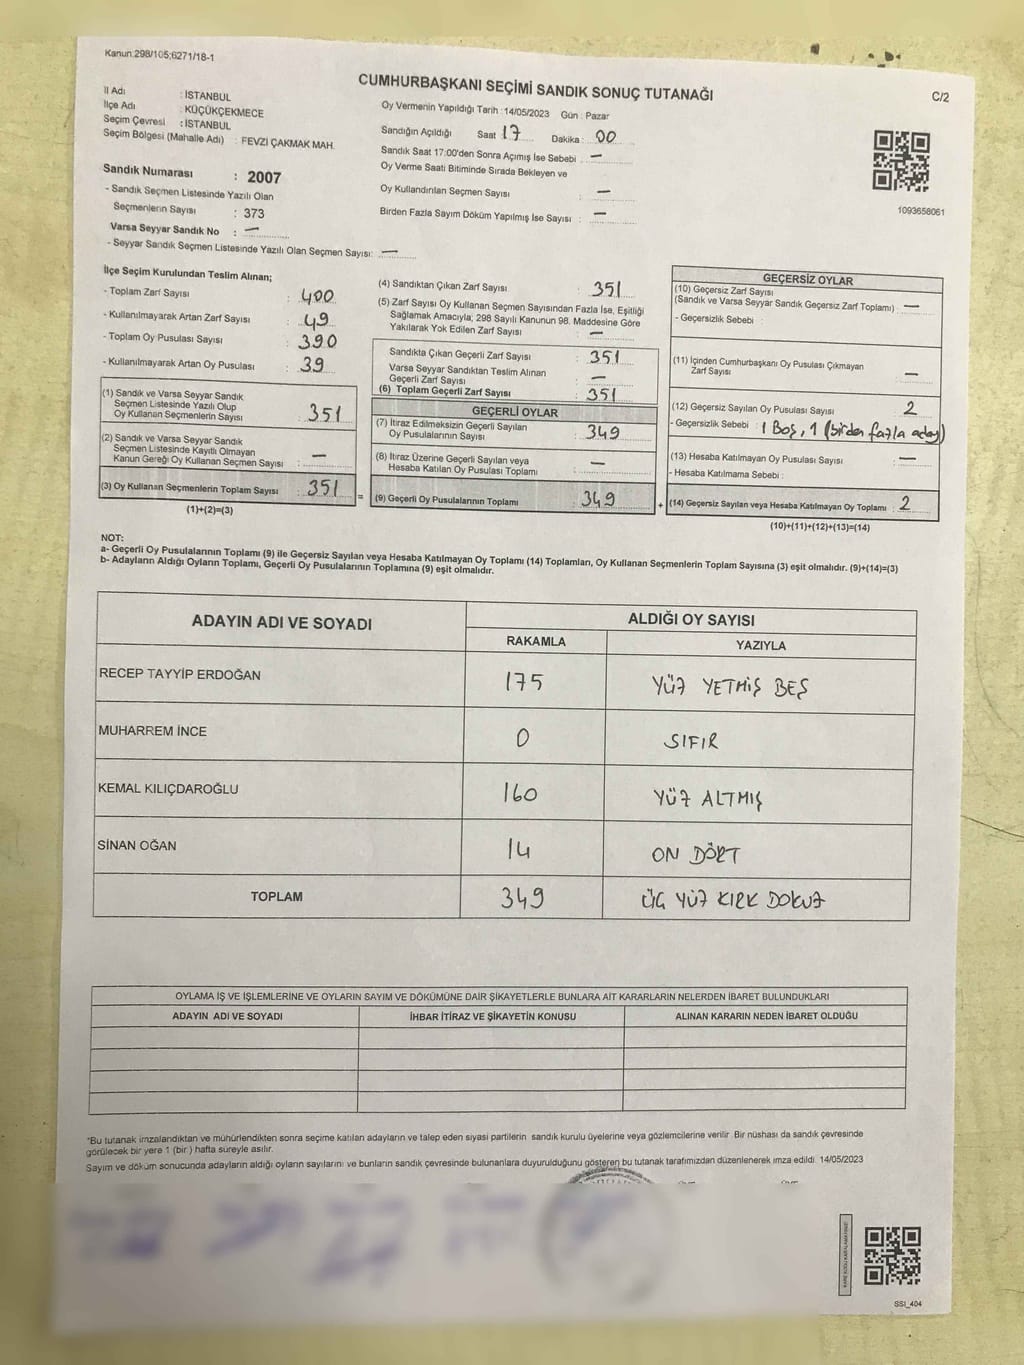 Kanun:298/105;6271/18-1
CUMHURBAŞKANI SEÇİMİ SANDIK SONUÇ TUTANAĞI
C/2
İl Adı : İSTANBUL
İlçe Adı : KÜÇÜKÇEKMECE
Seçim Çevresi : İSTANBUL
Seçim Bölgesi (Mahalle Adı) : FEVZİ ÇAKMAK MAH.
Sandık Numarası : 2007
- Sandık Seçmen Listesinde Yazılı Olan
Seçmenlerin Sayısı : 373
Varsa Seyyar Sandık No : —
- Seyyar Sandık Seçmen Listesinde Yazılı Olan Seçmen Sayısı: —
Oy Vermenin Yapıldığı Tarih : 14/05/2023 Gün : Pazar
Sandığın Açıldığı Saat : 17 Dakika : 00
Sandık Saat 17:00'den Sonra Açımış İse Sebebi : —
Oy Verme Saati Bitiminde Sırada Bekleyen ve
Oy Kullandırılan Seçmen Sayısı : —
Birden Fazla Sayım Döküm Yapılmış İse Sayısı : —
1093658061
İlçe Seçim Kurulundan Teslim Alınan;
- Toplam Zarf Sayısı : 400
- Kullanılmayarak Artan Zarf Sayısı : 49
- Toplam Oy Pusulası Sayısı : 390
- Kullanılmayarak Artan Oy Pusulası : 39
(1) Sandık ve Varsa Seyyar Sandık
Seçmen Listesinde Yazılı Olup
Oy Kullanan Seçmenlerin Sayısı : 351
(2) Sandık ve Varsa Seyyar Sandık
Seçmen Listesinde Kayıtlı Olmayan
Kanun Gereği Oy Kullanan Seçmen Sayısı : —
(3) Oy Kullanan Seçmenlerin Toplam Sayısı : 351
(1)+(2)=(3)
(4) Sandıktan Çıkan Zarf Sayısı : 351
(5) Zarf Sayısı Oy Kullanan Seçmen Sayısından Fazla İse, Eşitliği
Sağlamak Amacıyla; 298 Sayılı Kanunun 98. Maddesine Göre
Yakılarak Yok Edilen Zarf Sayısı : —
Sandıkta Çıkan Geçerli Zarf Sayısı : 351
Varsa Seyyar Sandıktan Teslim Alınan
Geçerli Zarf Sayısı : —
(6) Toplam Geçerli Zarf Sayısı : 351
GEÇERLİ OYLAR
(7) İtiraz Edilmeksizin Geçerli Sayılan
Oy Pusulalarının Sayısı : 349
(8) İtiraz Üzerine Geçerli Sayılan veya
Hesaba Katılan Oy Pusulası Toplamı : —
= (9) Geçerli Oy Pusulalarının Toplamı : 349
GEÇERSİZ OYLAR
(10) Geçersiz Zarf Sayısı
(Sandık ve Varsa Seyyar Sandık Geçersiz Zarf Toplamı) : —
- Geçersizlik Sebebi :
(11) İçinden Cumhurbaşkanı Oy Pusulası Çıkmayan
Zarf Sayısı : —
(12) Geçersiz Sayılan Oy Pusulası Sayısı : 2
- Geçersizlik Sebebi : 1 Boş, 1 (birden fazla aday)
(13) Hesaba Katılmayan Oy Pusulası Sayısı : —
- Hesaba Katılmama Sebebi :
+ (14) Geçersiz Sayılan veya Hesaba Katılmayan Oy Toplamı : 2
(10)+(11)+(12)+(13)=(14)
NOT:
a- Geçerli Oy Pusulalarının Toplamı (9) ile Geçersiz Sayılan veya Hesaba Katılmayan Oy Toplamı (14) Toplamları, Oy Kullanan Seçmenlerin Toplam Sayısına (3) eşit olmalıdır. (9)+(14)=(3)
b- Adayların Aldığı Oyların Toplamı, Geçerli Oy Pusulalarının Toplamına (9) eşit olmalıdır.
ADAYIN ADI VE SOYADI
ALDIĞI OY SAYISI
RAKAMLA YAZIYLA
RECEP TAYYİP ERDOĞAN 175 YÜZ YETMİŞ BEŞ
MUHARREM İNCE 0 SIFIR
KEMAL KILIÇDAROĞLU 160 YÜZ ALTMIŞ
SİNAN OĞAN 14 ON DÖRT
TOPLAM 349 ÜÇ YÜZ KIRK DOKUZ
OYLAMA İŞ VE İŞLEMLERİNE VE OYLARIN SAYIM VE DÖKÜMÜNE DAİR ŞİKAYETLERLE BUNLARA AİT KARARLARIN NELERDEN İBARET BULUNDUKLARI
ADAYIN ADI VE SOYADI İHBAR İTİRAZ VE ŞİKAYETİN KONUSU ALINAN KARARIN NEDEN İBARET OLDUĞU
*Bu tutanak imzalandıktan ve mühürlendikten sonra seçime katılan adayların ve talep eden siyasi partilerin sandık kurulu üyelerine veya gözlemcilerine verilir. Bir nüshası da sandık çevresinde
görülecek bir yere 1 (bir ) hafta süreyle asılır.
Sayım ve döküm sonucunda adayların aldığı oyların sayılarını ve bunların sandık çevresinde bulunanlara duyurulduğunu gösteren bu tutanak tarafımızdan düzenlenerek imza edildi. 14/05/2023
SSI_404